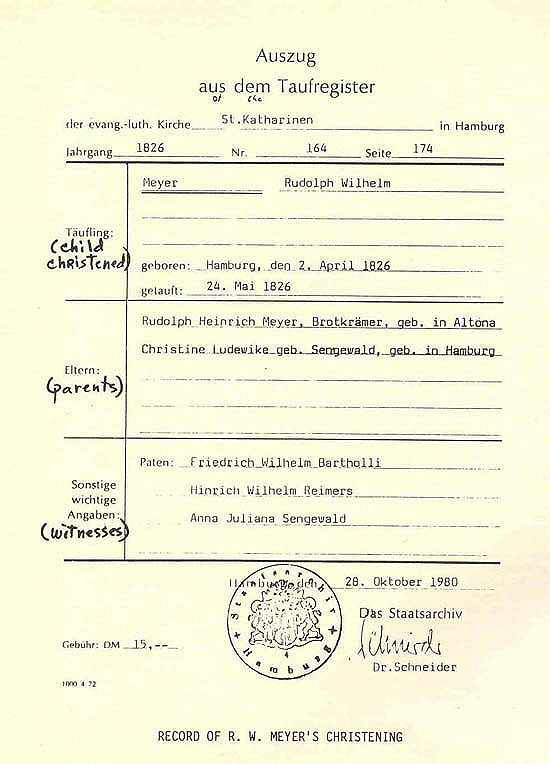 Auszug
aus dem Taufregister
of the
der evang.-luth. Kirche St.Katharinen in Hamburg
Jahrgang 1826 Nr. 164 Seite 174
Meyer Rudolph Wilhelm
Täufling:
(child
christened)
geboren: Hamburg, den 2. April 1826
getauft: 24. Mai 1826
Rudolph Heinrich Meyer, Brotkrämer, geb. in Altona
Christine Ludewike geb. Sengewald, geb. in Hamburg
Eltern:
(parents)
Paten: Friedrich Wilhelm Bartholli
Hinrich Wilhelm Reimers
Anna Juliana Sengewald
Sonstige
wichtige
Angaben:
(witnesses)
Hamburg, den 28. Oktober 1980
Staatsarchiv
Hamburg
Das Staatsarchiv
Dr.Schneider
Gebühr: DM 15,--
1000 4 72
RECORD OF R. W. MEYER'S CHRISTENING